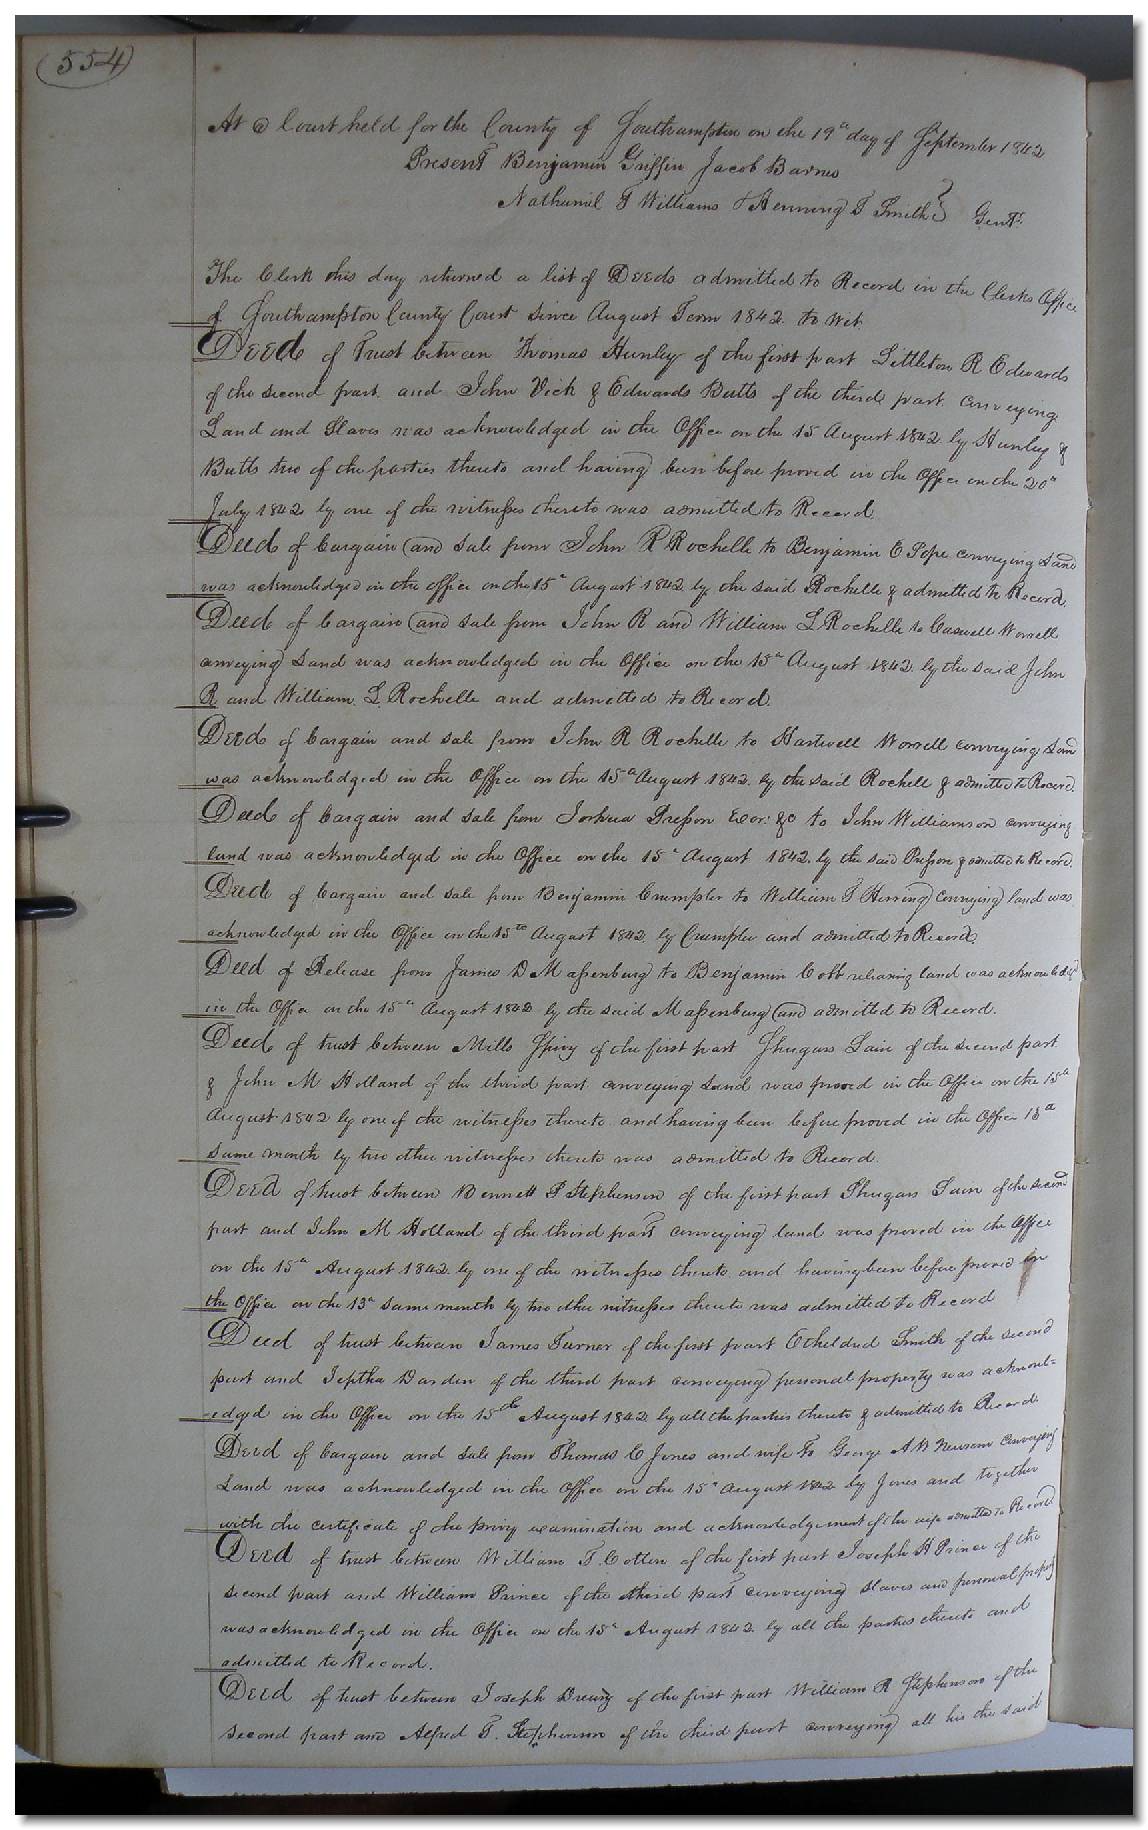 554
At a Court held for the County of Southampton on the 19th day of September 1842
Present Benjamin Griffin Jacob Barnes
Nathaniel T Williams & Henning T Smith Gent:
The Clerk this day returned a list of Deeds admitted to Record in the Clerks Office
of Southampton County Court since August Term 1842 to Wit
Deed of Trust between Thomas Hunley of the first part Littleton R Edwards
of the second part and John Vick & Edwards Butts of the third part conveying
Land and Slaves was acknowledged in the Office on the 15 August 1842 by Hunley &
Butts two of the parties thereto and having been before proved in the Office on the 20th
July 1842 by one of the witnesses thereto was admitted to Record
Deed of bargain and sale from John R Rochelle to Benjamin E Pope conveying Land
was acknowledged in the office on the 15th August 1842 by the said Rochelle & admitted to Record.
Deed of bargain and sale from John R and William L Rochelle to Caswell Worrell
conveying Land was acknowledged in the Office on the 15th August 1842 by the said John
R and William L Rochelle and admitted to Record.
Deed of bargain and sale from John R Rochelle to Hartwell Worrell conveying Land
was acknowledged in the Office on the 15th August 1842 by the said Rochell & admitted to Record.
Deed of bargain and sale from Joshua Presson Exor: &c to John Williamson conveying
land was acknowledged in the Office on the 15th August 1842 by the said Presson & admitted to Record.
Deed of bargain and sale from Benjamin Crumpler to William T Herring conveying land was
acknowledged in the Office on the 15th August 1842 by Crumpler and admitted to Record.
Deed of Release from James D Massenburg to Benjamin Cobb releasing land was acknowledged
in the Office on the 15th August 1842 by the said Massenburg and admitted to Record.
Deed of trust between Mills Spivy of the first part Shugars Lain of the second part
& John M Holland of the third part conveying Land was proved in the Office on the 15th
August 1842 by one of the witnesses thereto and having been before proved in the Office 13th
same month by two other witnesses thereto was admitted to Record.
Deed of trust between Bennett P Stephenson of the first part Shugars Lain of the second
part and John M Holland of the third part conveying land was proved in the Office
on the 15th August 1842 by one of the witnesses thereto and having been before proved in
the Office on the 13th same month by two other witnesses thereto was admitted to Record
Deed of trust between James Turner of the first part Etheldred Smith of the second
part and Jeptha Darden of the third part conveying personal property was acknowl=
=edged in the Office on the 15th August 1842 by all the parties thereto & admitted to Record
Deed of bargain and sale from Thomas C Jones and wife to George A W Newsom conveying
Land was acknowledged in the Office on the 15th August 1842 by Jones and together
with the certificate of the privy examination and acknowledgement of the wife admitted to Record
Deed of trust between William T. Cotten of the first part Joseph H Prince of the
second part and William Prince of the third part conveying slaves and personal property
was acknowledged in the Office on the 15th August 1842 by all the parties thereto and
admitted to Record.
Deed of trust between Joseph Drewry of the first part William R Stephenson of the
second part and Alfred T. Stephenson of the third part conveying all his the said